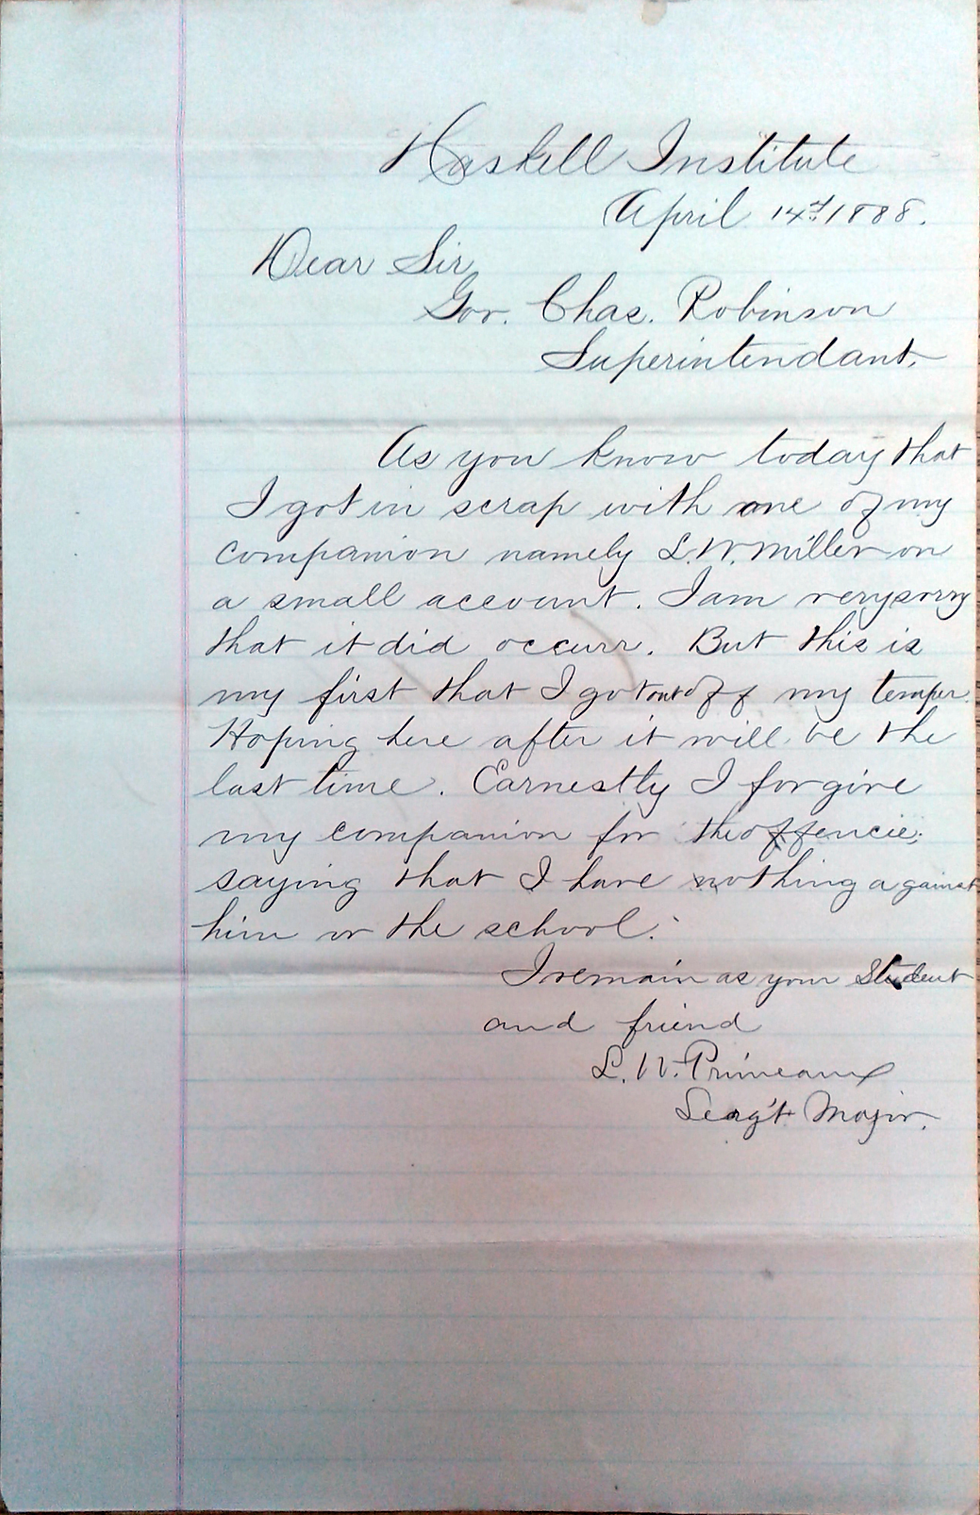 Haskell Institute
April 14th 1888.
Dear Sir
Gov. Chas. Robinson
Superintendant.
As you know today that
I got in scrap with one of my
companion namely L. W. Miller on
a small account. I am very sorry
that it did occurr. But this is
my first that I got out off my temper.
Hoping here after it will be the
last time. Earnestly I forgive
my companion for the offencie;
saying that I have nothing against
him or the school.
I remain as your Student
and friend
L. W. Primeaux
Searg't Major.